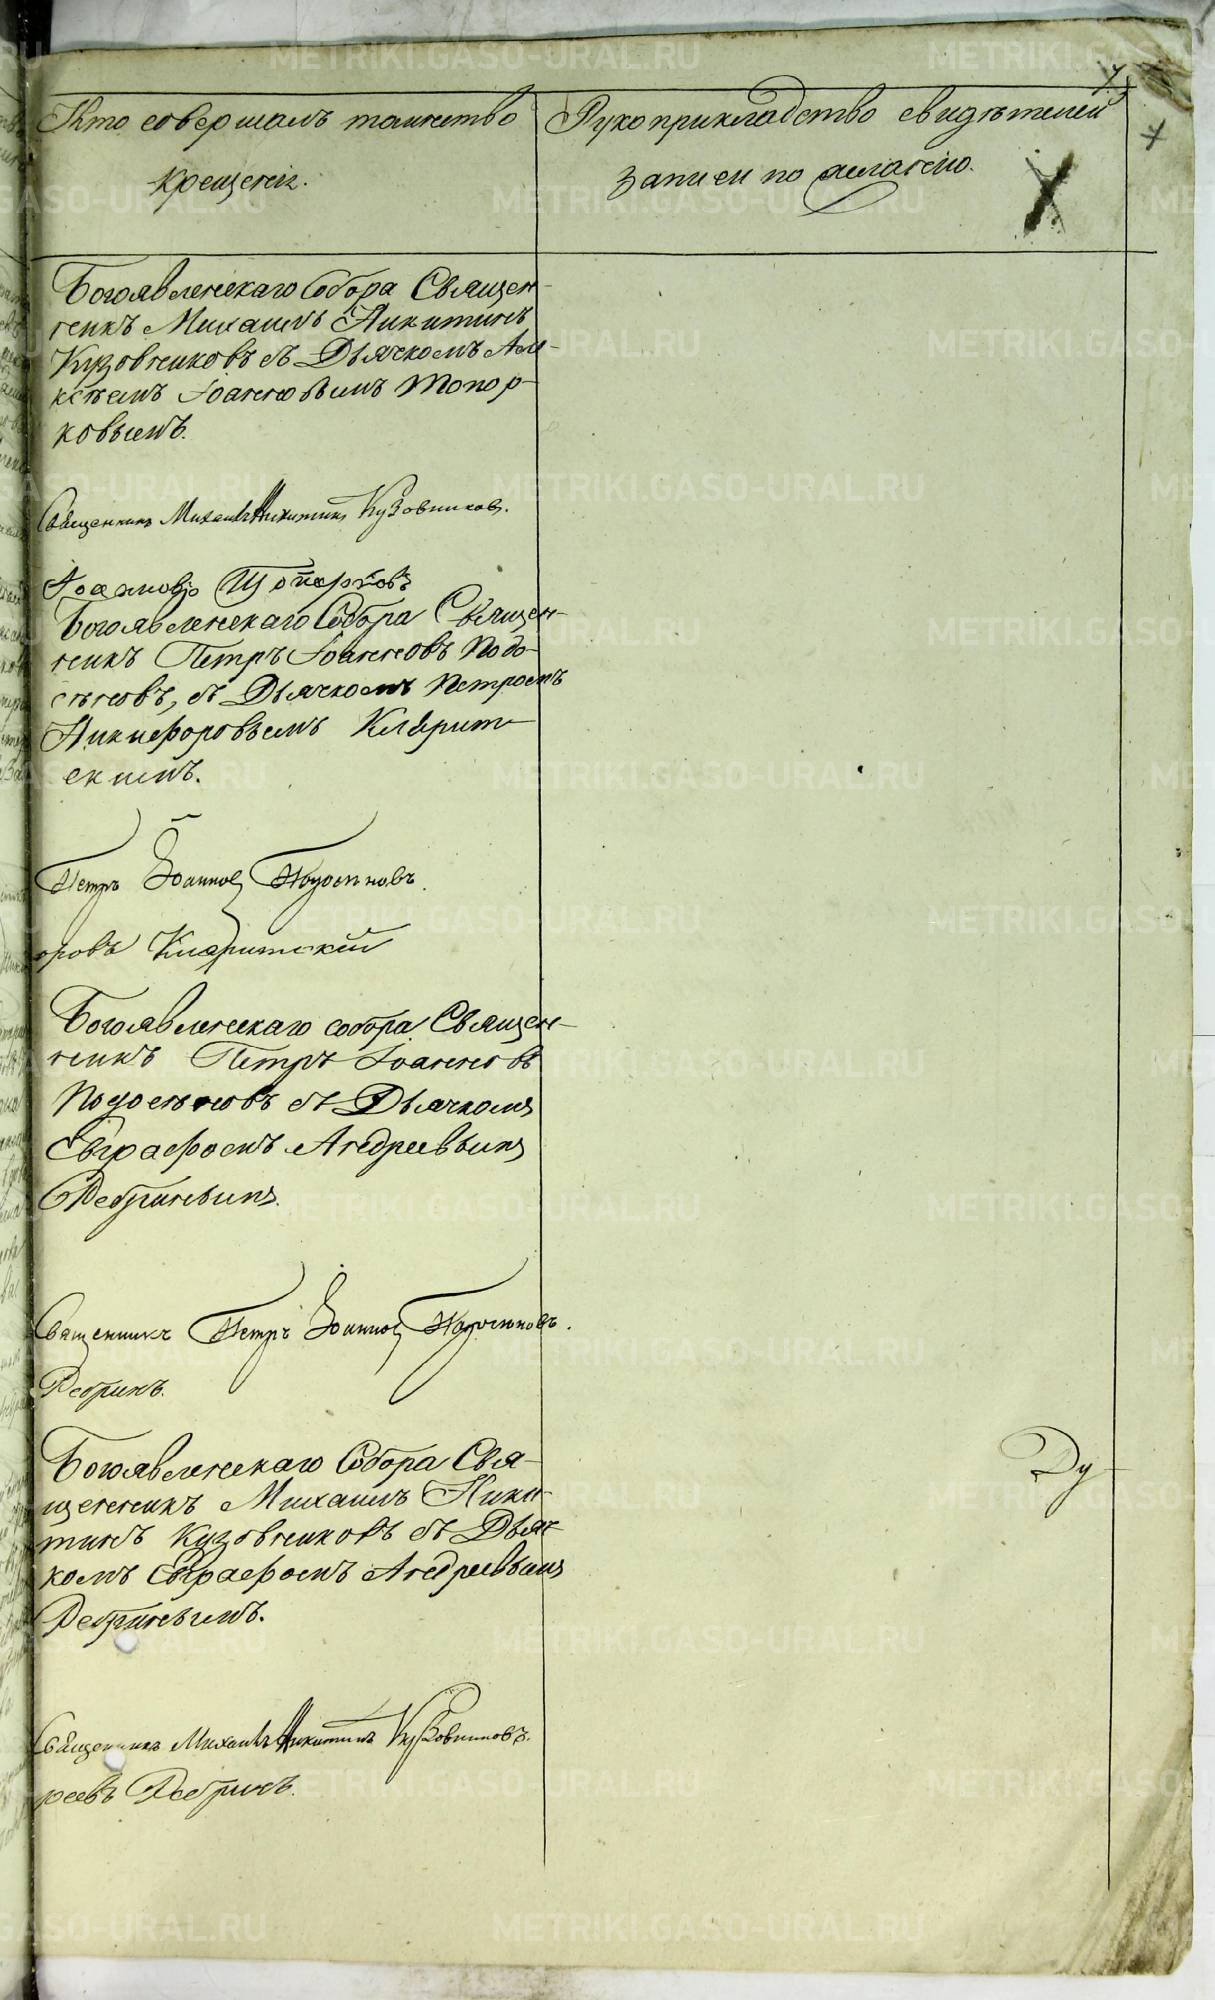 Кто совершалъ таинство
крещенія.
Рукоприкладство свидѣтелей
записи по желанію.
7
Богоявленскаго Собора Священ-
никъ Михаилъ Никитинъ
Кузовниковъ съ Дьячкомъ Але-
ксѣемъ Іоанновымъ Топор-
ковымъ.
Священникъ Михаилъ Никитинъ Кузовниковъ.
Іоанновъ Топорковъ
Богоявленскаго Собора Священ-
никъ Петръ Іоанновъ Подо-
сѣновъ, съ Дьячкомъ Петромъ
Никифоровымъ Кляритс-
скимъ.
Петръ Іоанновъ Подосѣновъ.
оровъ Кляритскій
Богоявленскаго собора Священ-
никъ Петръ Іоанновъ
Подосѣновъ съ Дьячкомъ
Евграфомъ Андреевымъ
Ребринымъ.
Священникъ Петръ Іоанновъ Подосѣновъ.
Ребринъ.
Богоявленскаго Собора Свя-
щенникъ Михаилъ Ники-
тинъ Кузовниковъ съ Дьяч-
комъ Евграфомъ Андреевымъ
Ребринымъ.
Ду-
Священникъ Михаилъ Никитинъ Кузовниковъ.
реевъ Ребринъ.
METRIKI.GASO-URAL.RU